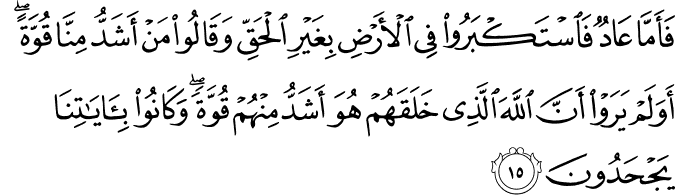 فَأَمَّا عَادٌ فَٱسْتَكْبَرُوا۟ فِى ٱلْأَرْضِ بِغَيْرِ ٱلْحَقِّ وَقَالُوا۟ مَنْ أَشَدُّ مِنَّا قُوَّةً ۖ
أَوَلَمْ يَرَوْا۟ أَنَّ ٱللَّهَ ٱلَّذِى خَلَقَهُمْ هُوَ أَشَدُّ مِنْهُمْ قُوَّةً ۖ وَكَانُوا۟ بِـَٔايَٰتِنَا
يَجْحَدُونَ ١٥